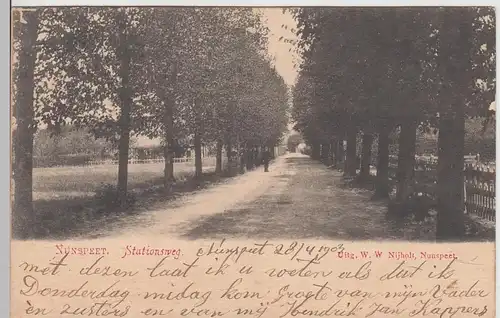 NUNSPEET. Stationsweg Nunspeet 28/4 1903 Uitg. W. W Nijholt, Nunspeet.
met dezen laat ik u weten als dat ik
Donderdag midag kom groete van mijn Vader
en zusters en van mij Hendrik Jan Kappers